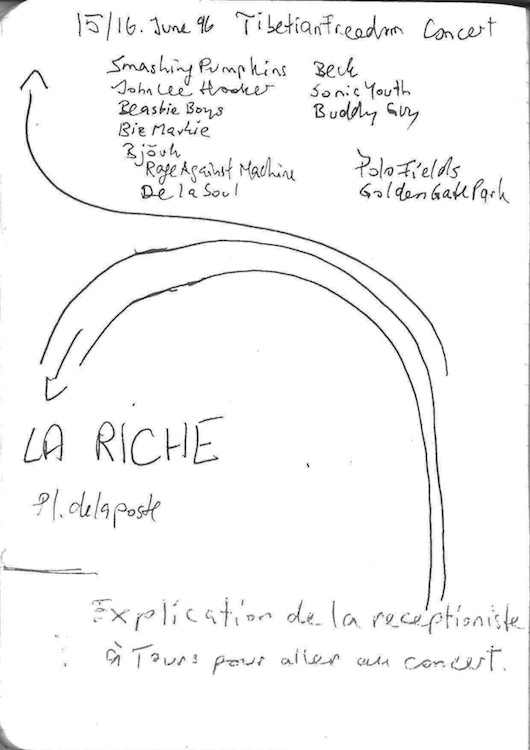 15/16. June 96 Tibetian Freedom Concert
Smashing Pumpkins
John Lee Hooker
Beastie Boys
Biz Markie
Björk
Rage Against Machine
De la Soul
Beck
Sonic Youth
Buddy Guy
Polo Fields
Golden Gate Park
LA RICHE
Pl. de la poste
Explication de la receptioniste
à Tours pour aller au concert.